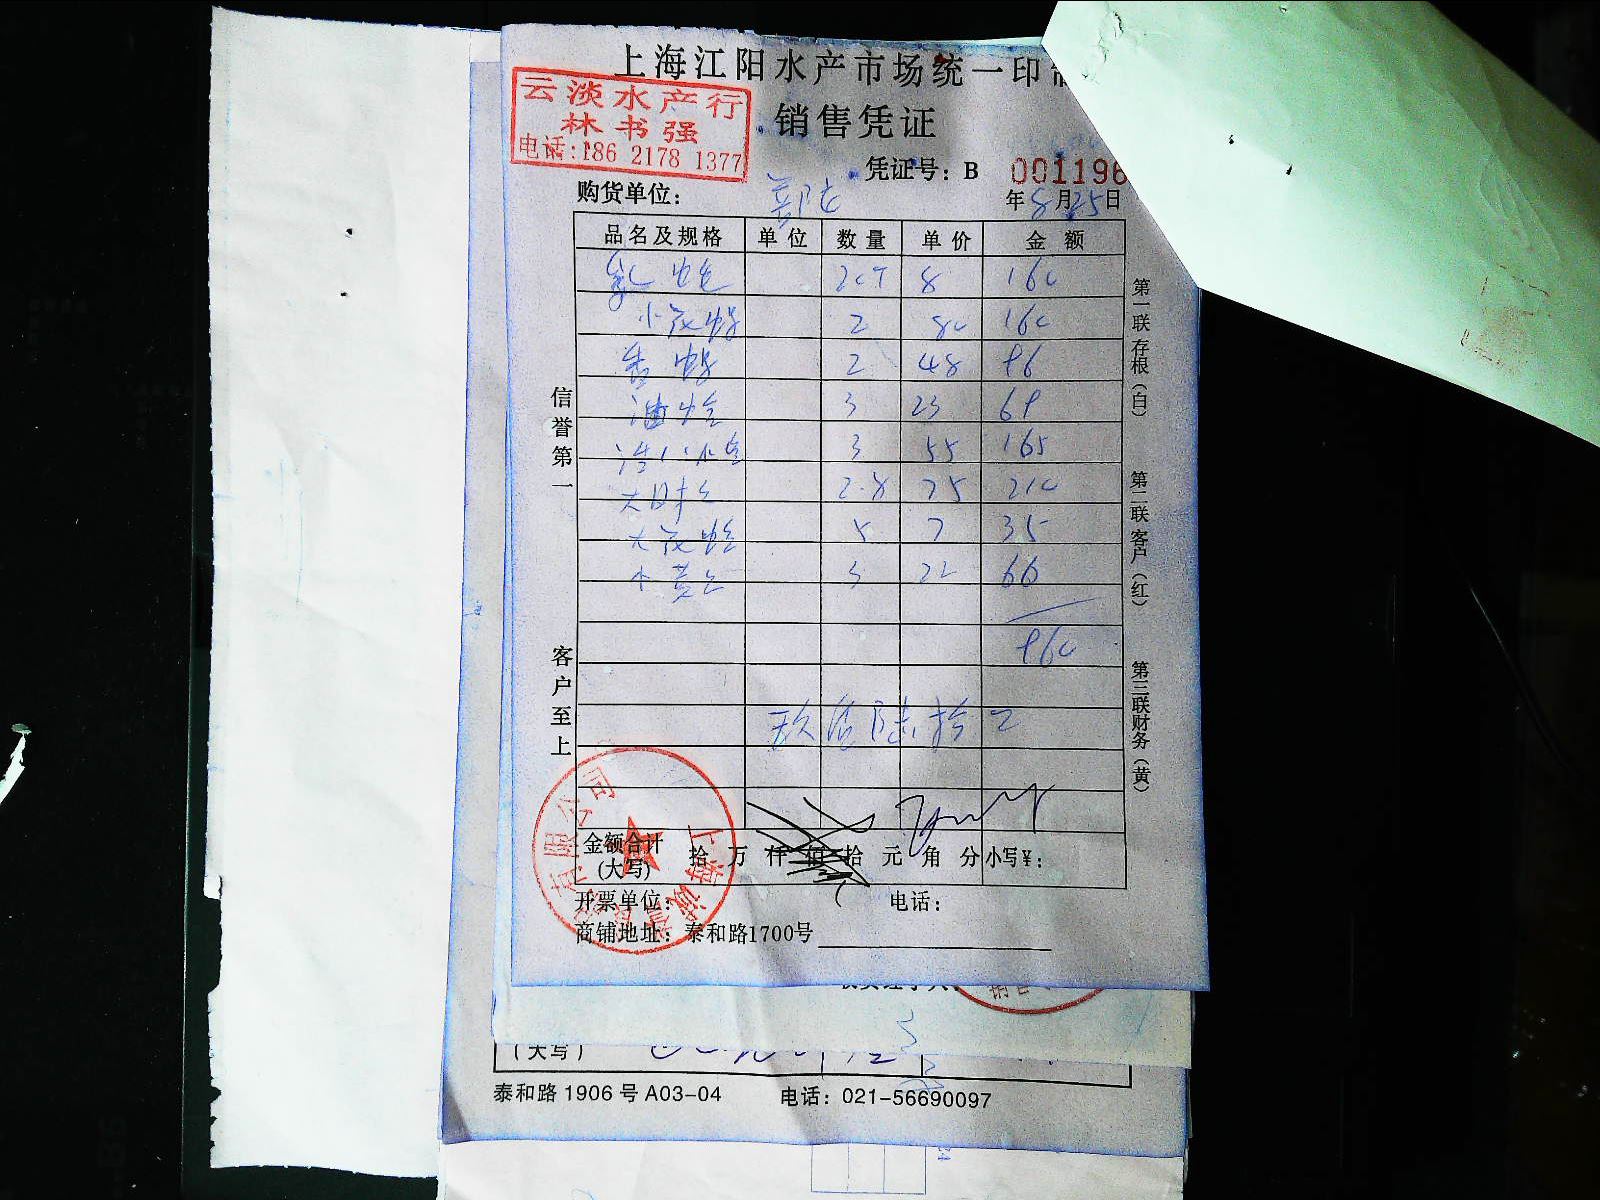 上海江阳水产市场统一印
云淡水产行
林书强
电话:186 2178 1377
销售凭证
凭证号：B 001196
购货单位：
年8月25日
品名及规格 单位 数量 单价 金额
8 160
小花蛤 2 80 160
2 48 96
油蛤 3 23 69
3 55 165
2.8 75 210
大花蛤 5 7 35
小黄 3 22 66
960
玖佰陆拾
金额合计
(大写)
拾 万 仟 佰 拾 元 角 分 小写¥：
开票单位：
电话：
商铺地址：泰和路1700号
信誉第一
客户至上
第一联 存根（白）
第二联 客户（红）
第三联 财务（黄）
有限公司
上海诚
（大写）
泰和路 1906 号 A03-04 电话：021-56690097